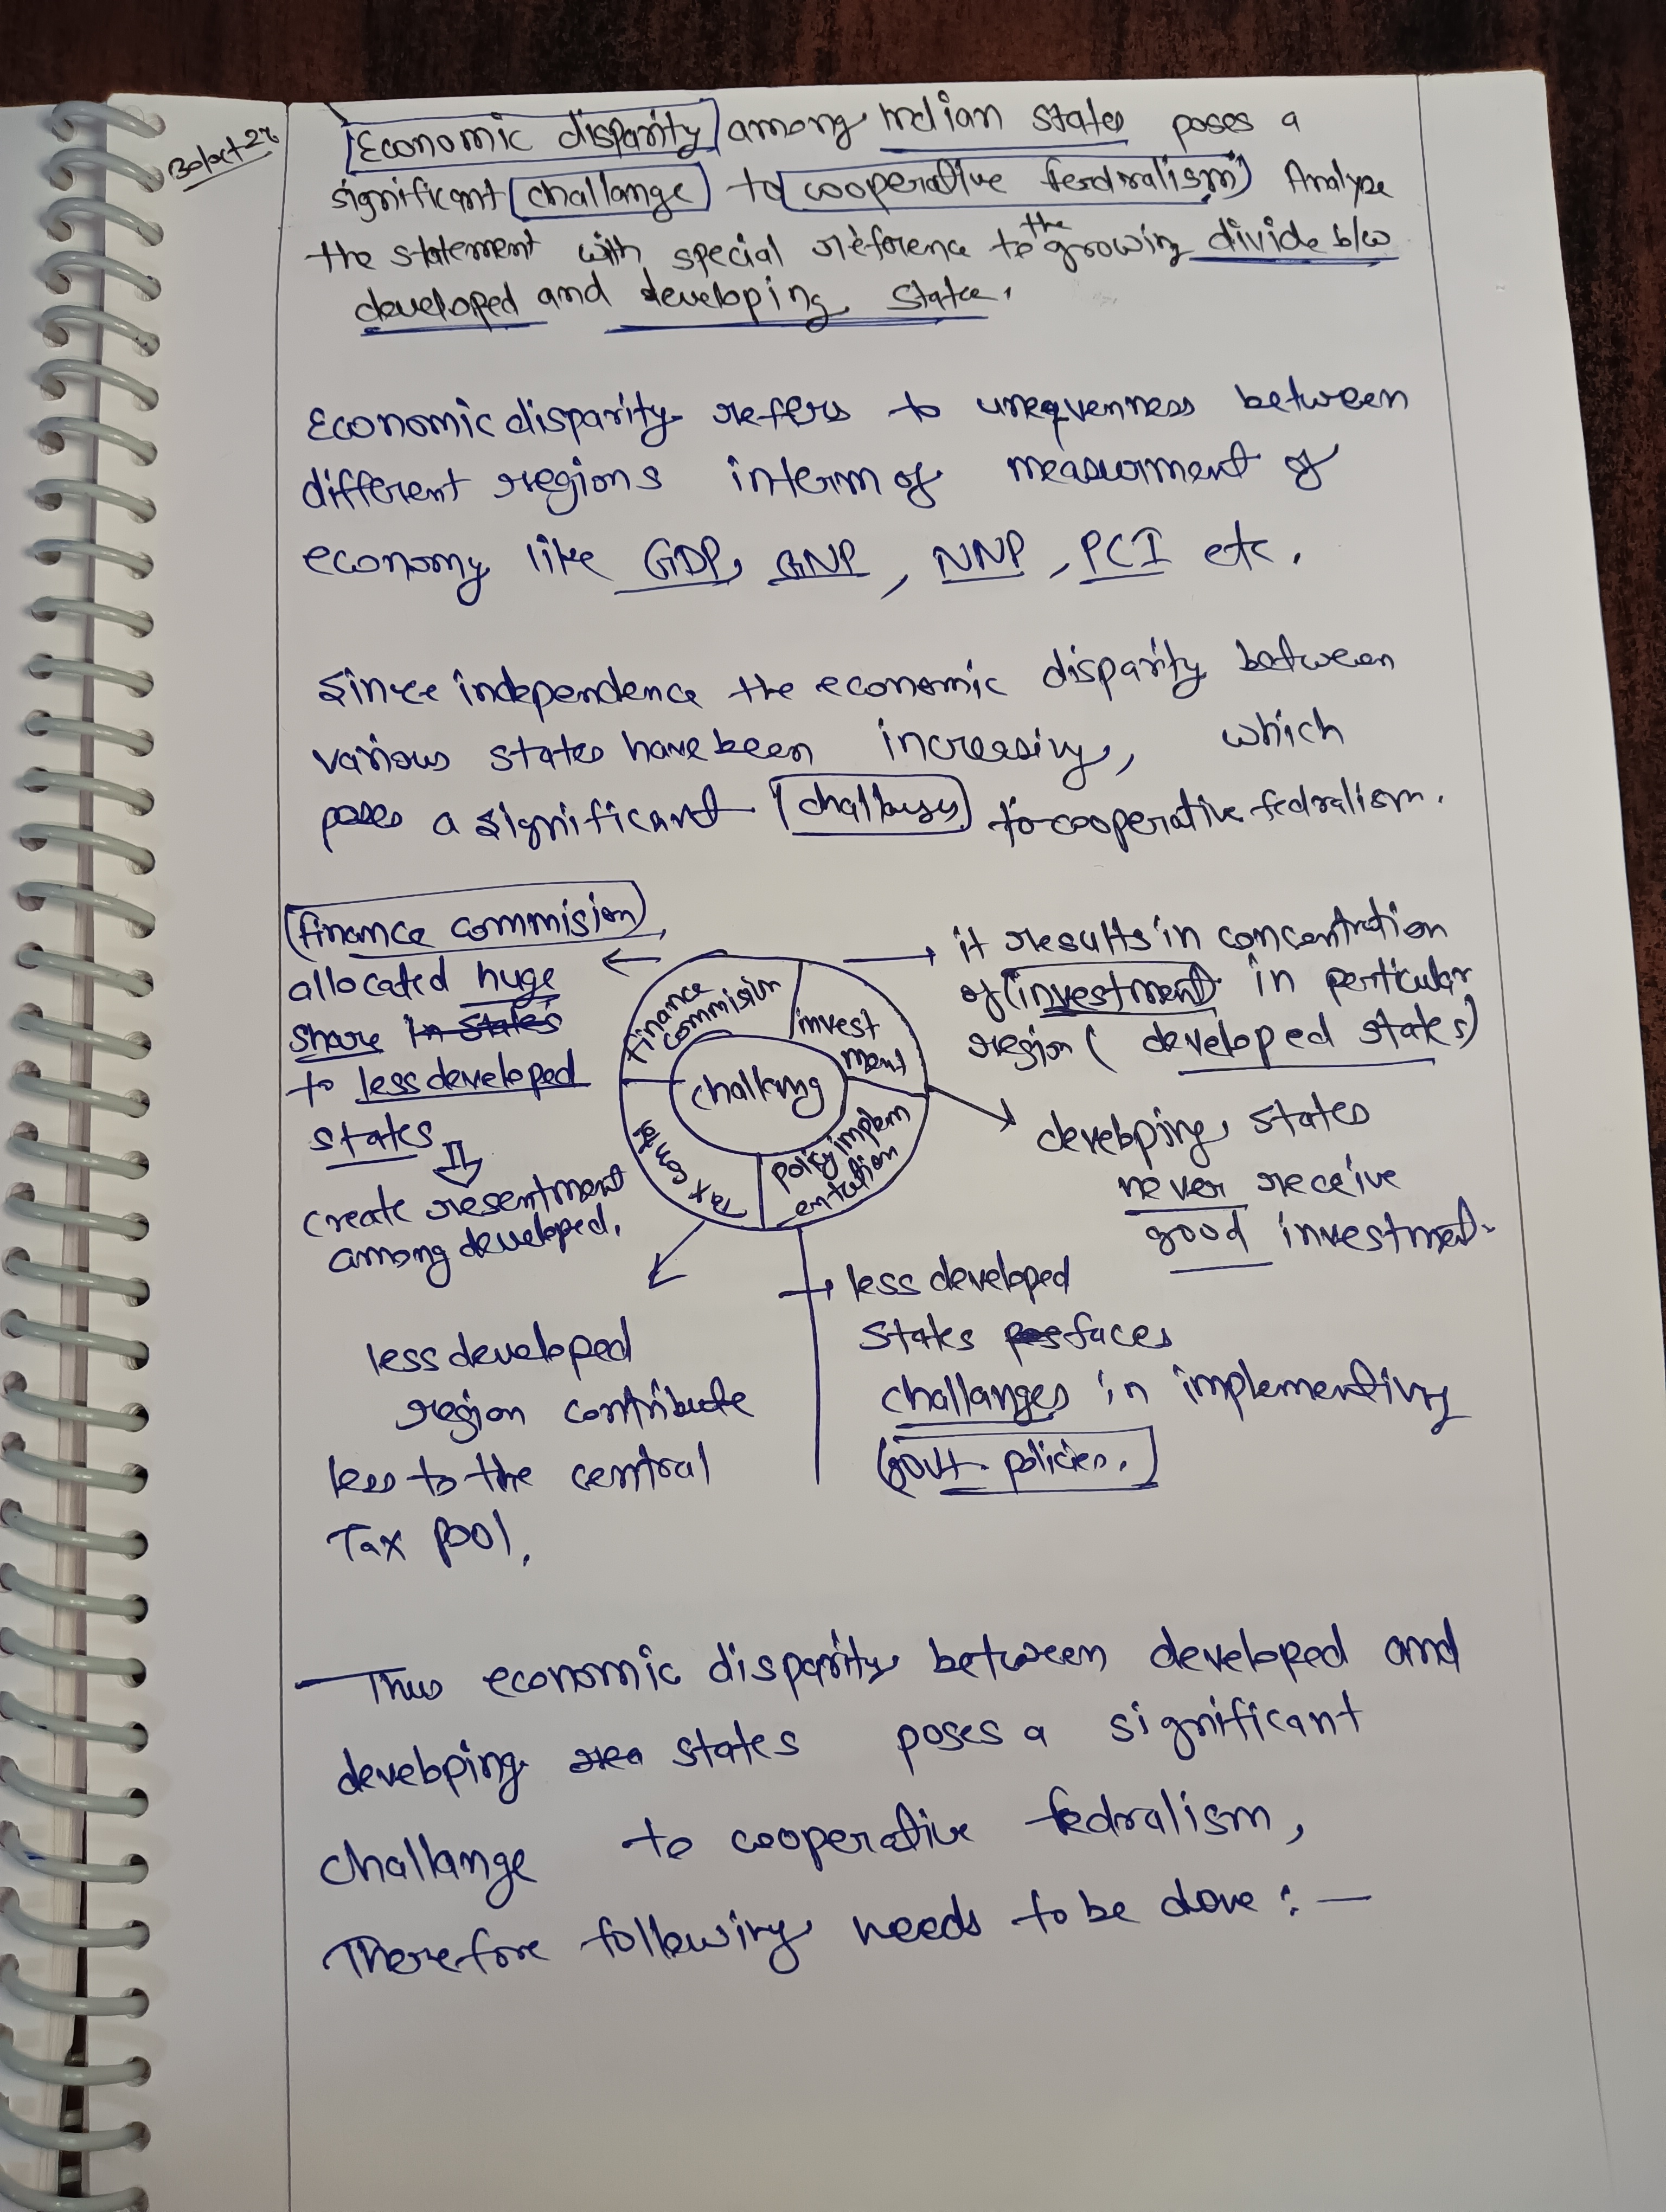 Economic disparity among Indian states poses a
significant challange to cooperative ferdralism) Analyze
the statement with special reference to the growing divide b/w
developed and developing state.
Economic disparity refers to unequenness between
different regions interm of measurment of
economy like GDP, GNP, NNP, PCI etc.
Since independence the economic disparity between
various states have been increasing, which
poses a significant to cooperative fedralism.
finance commision
allocated huge
share in states
to less developed
states
create resentment
among developed.
it results in concentration
of investment in perticular
region ( developed states)
developing states
never receive
good investment.
finance
commision
invest
ment
policy implem
entation
less developed
region contribute
less to the central
Tax pool.
less developed
states faces
challanges in implementing
Govt. policies.
Thus economic disparity between developed and
developing states poses a significant
challange to cooperative fedralism,
Therefore following needs to be done : —